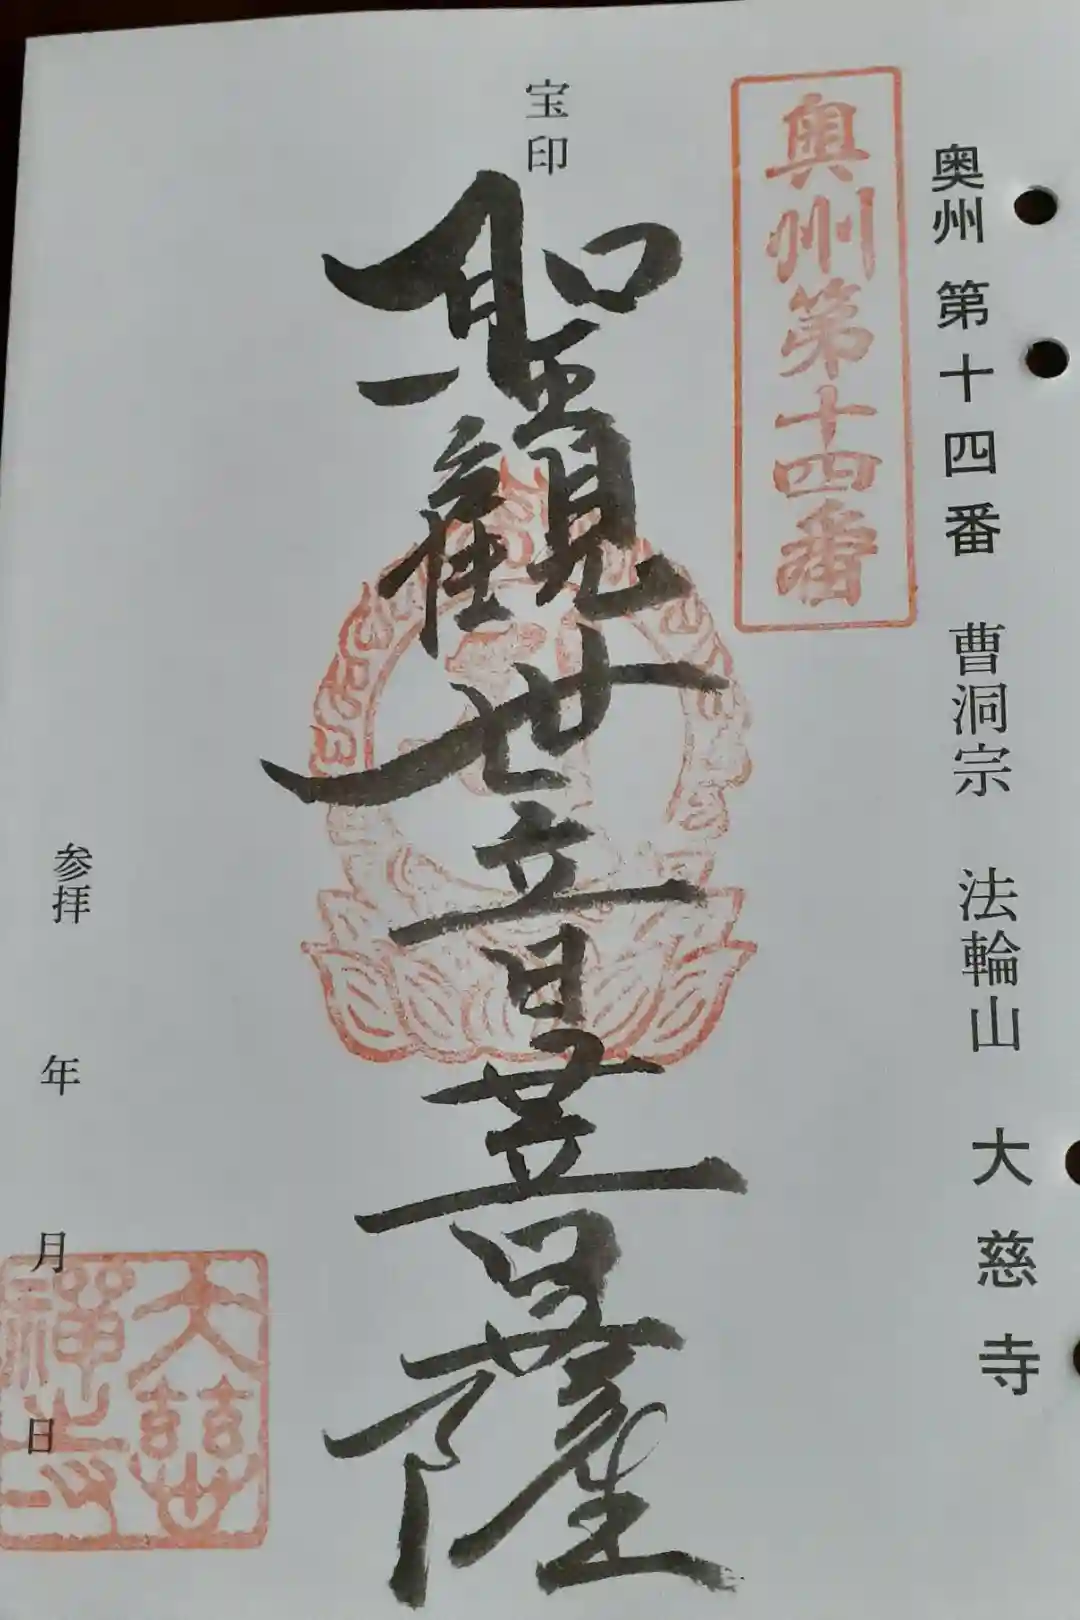 奥州 第十四番 曹洞宗 法輪山 大慈寺
奥州第十四番
宝印
聖觀世音菩薩
参拝 年 月 日